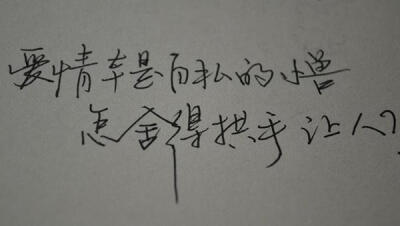 爱情本是自私的小兽
怎舍得拱手让人?